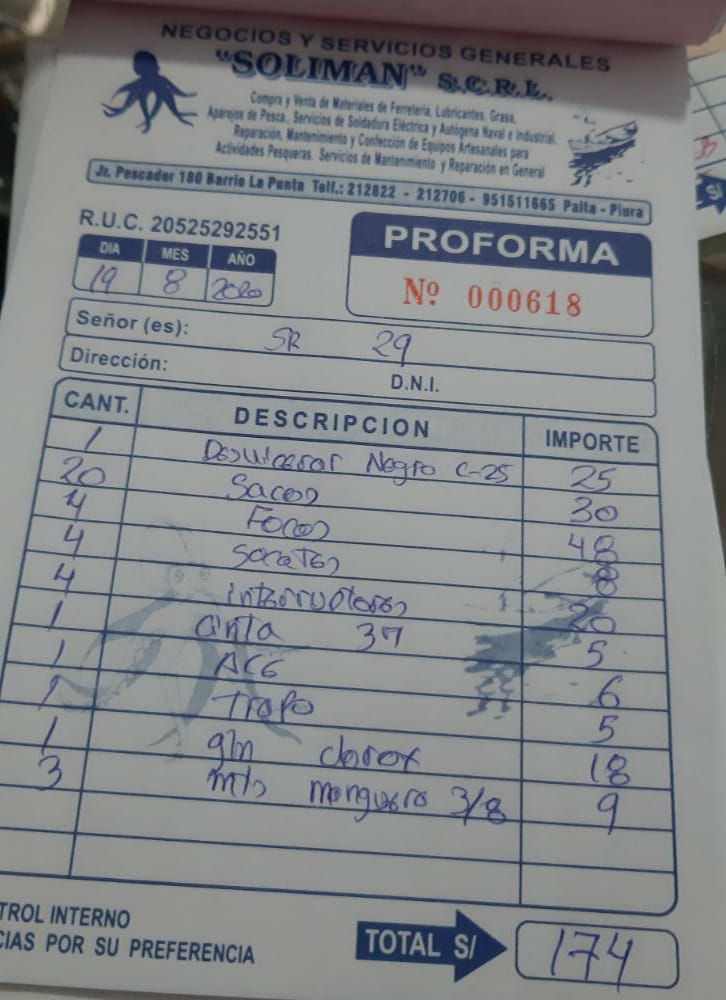 NEGOCIOS Y SERVICIOS GENERALES
"SOLIMAN" S.C.R.L.
Compra y Venta de Materiales de Ferretería, Lubricantes, Grasa,
Aparejos de Pesca, Servicios de Soldadura Eléctrica y Autógena Naval e Industrial.
Reparación, Mantenimiento y Confección de Equipos Artesanales para
Actividades Pesqueras. Servicios de Mantenimiento y Reparación en General
Jr. Pescador 180 Barrio La Punta Telf.: 212822 - 212706 - 951511665 Paita - Piura
R.U.C. 20525292551
PROFORMA
DIA MES AÑO
19 8 2020
Nº 000618
Señor (es): SR 29
Dirección: D.N.I.
CANT. DESCRIPCION IMPORTE
1 Negro C-25 25
20 Sacos 30
4 Focos 48
4 Socates 8
4 interruptores 20
1 cinta 37 5
1 AC6 6
1 Trapo 5
1 gln clorox 18
3 mts manguera 3/8 9
TROL INTERNO
CIAS POR SU PREFERENCIA
TOTAL S/ 174